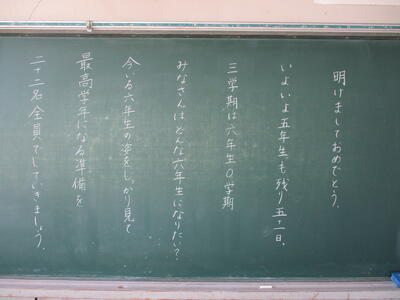 明けましておめでとう。
いよいよ五年生も残り五十一日。
三学期は六年生0学期
みなさんはどんな六年生になりたい?
今いる六年生の姿をしっかり見て
最高学年になる準備を
二十二名全員でしていきましょう。